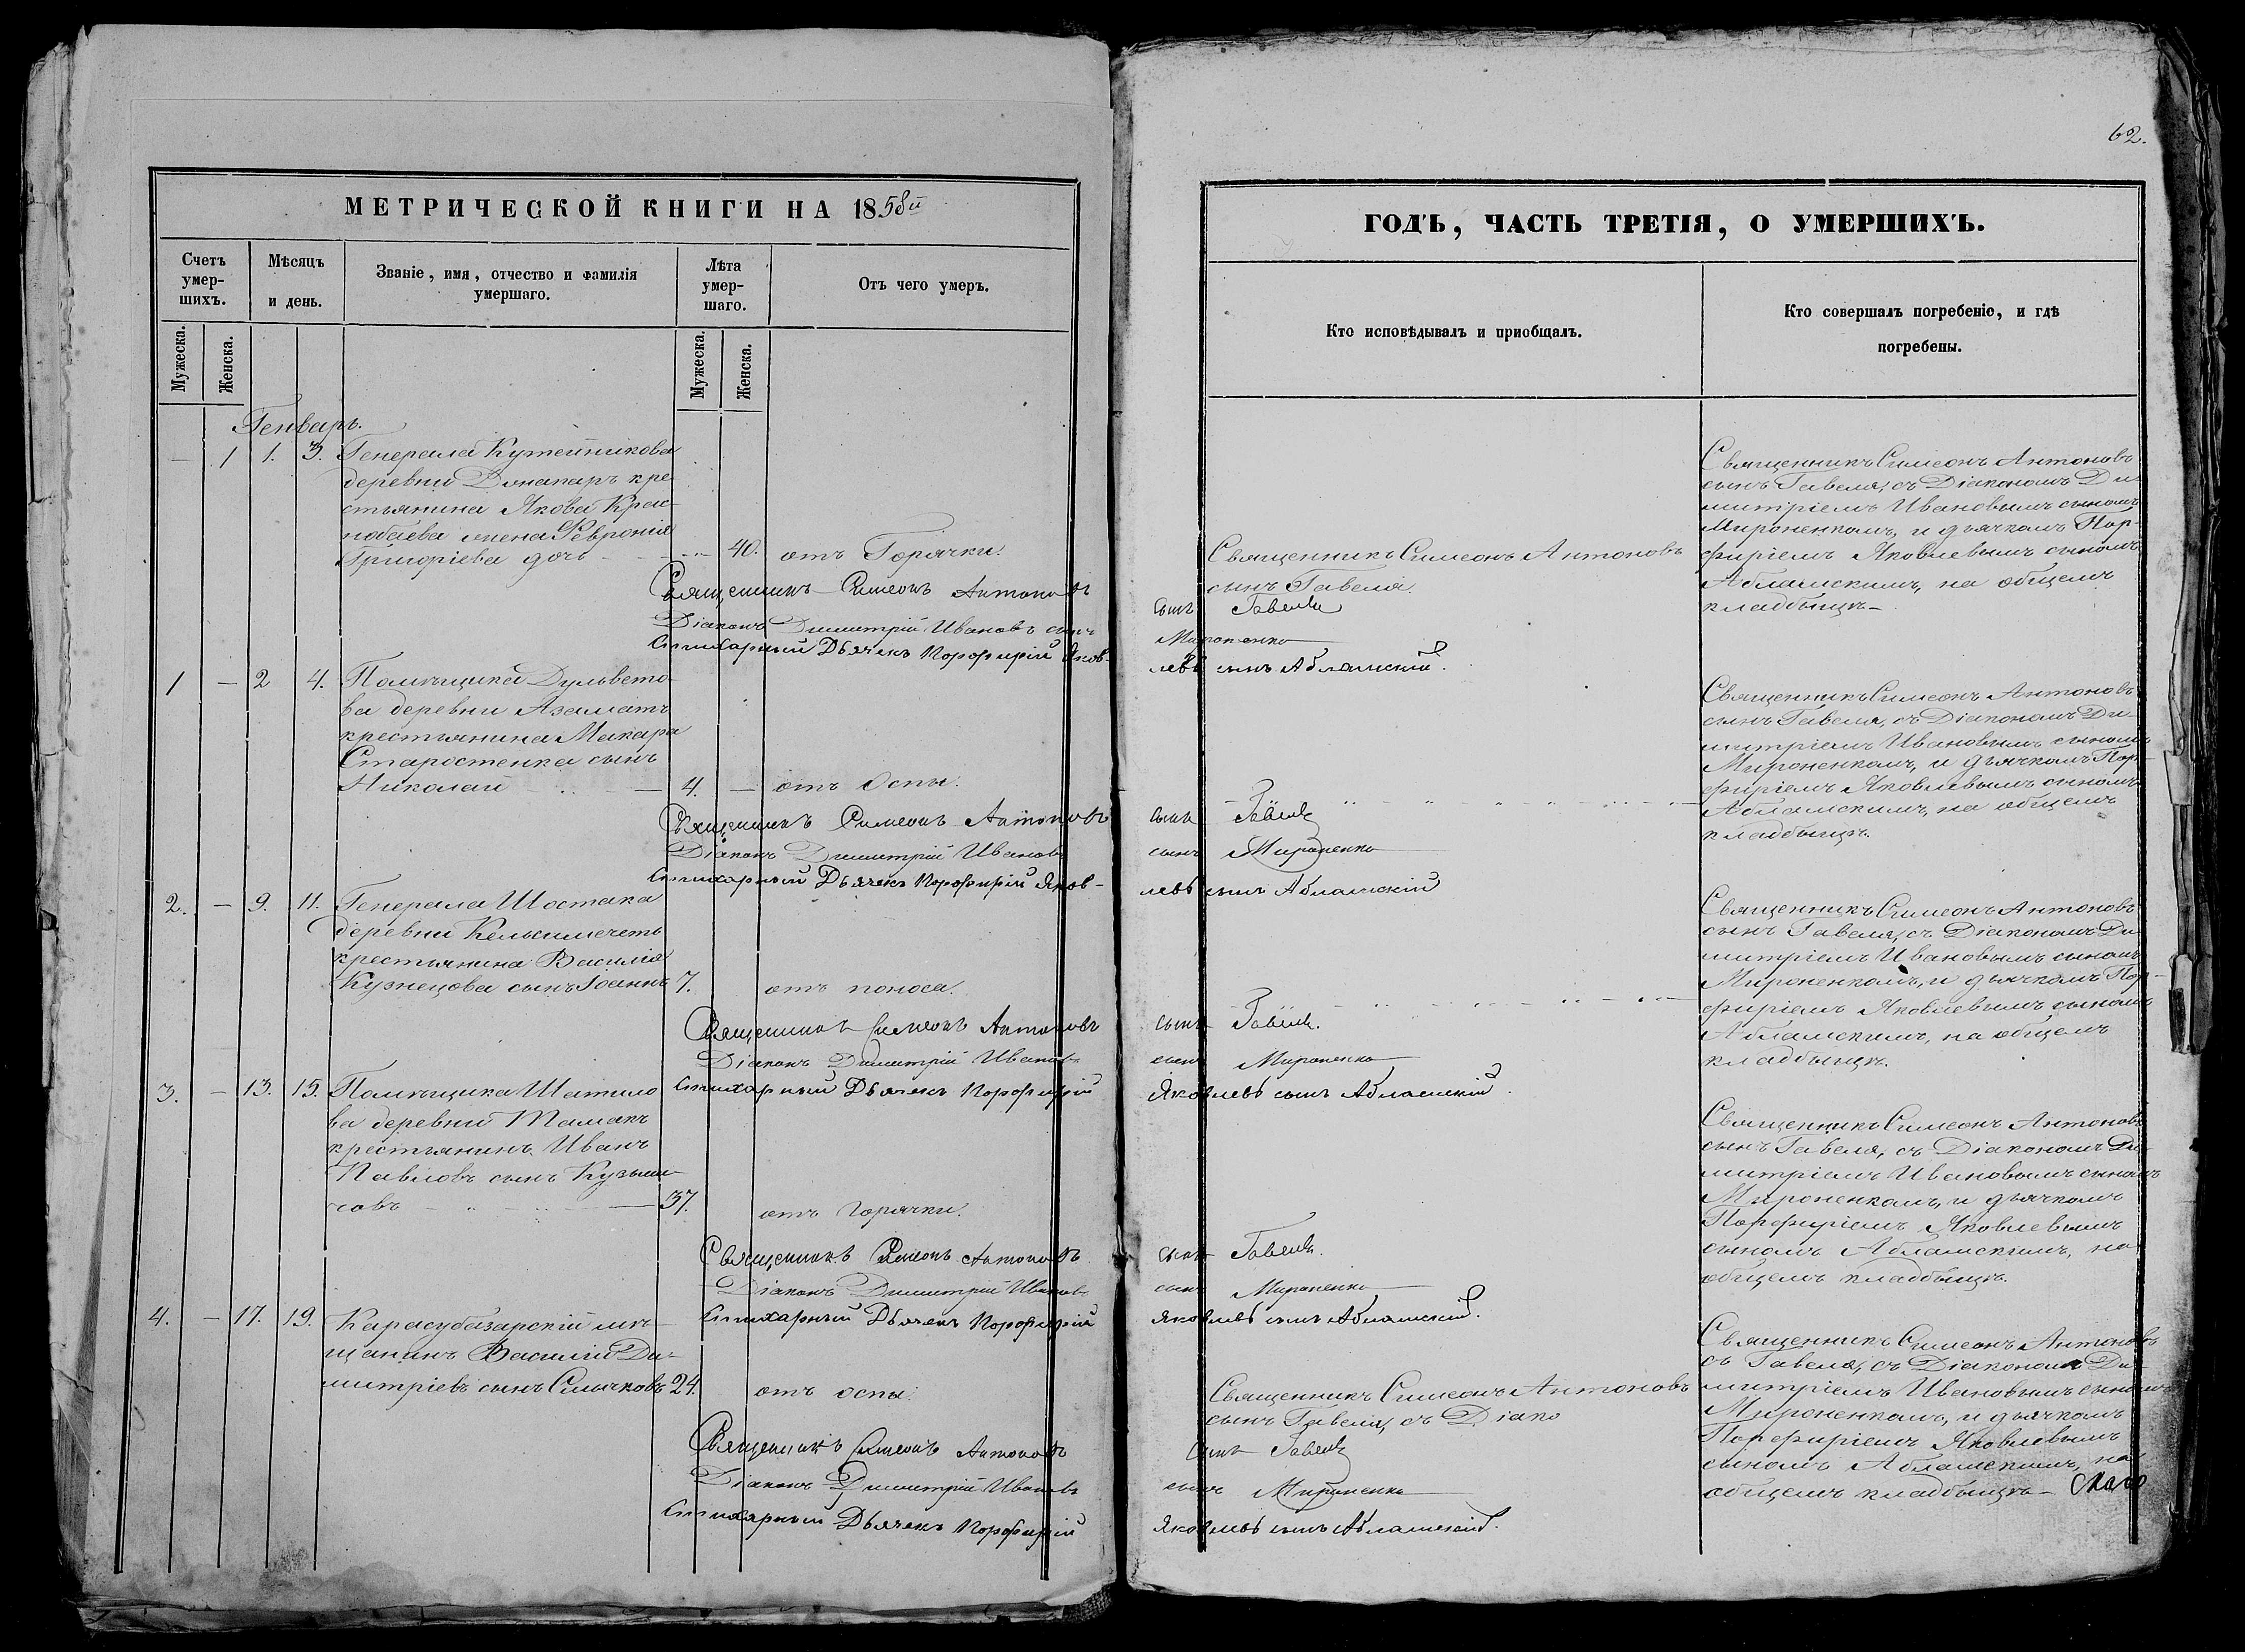 МЕТРИЧЕСКОЙ КНИГИ НА 1858й
Счетъ умер-шихъ.
Мѣсяцъ и день.
Званіе, имя, отчество и фамилія умершаго.
Лѣта умер-шаго.
Отъ чего умеръ.
Мужеска.
Женска.
Мужеска.
Женска.
Генварь.
— 1 1. 3. Генерала Кутейникова
деревни Донапаръ кре
стьянина Якова Крас
нобаева жена Феврония
Григоріева дочь 40. отъ Горячки.
Священникъ Симеонъ Антоновъ
Діаконъ Димитрій Ивановъ сынъ
Стихарный Дьячекъ Порфирій Яков-
1 — 2 4. Помѣщика Дульвето
ва деревни Азаматъ
крестьянина Макара
Старостенка сынъ
Николай — 4. — отъ Оспы.
Священникъ Симеонъ Антоновъ
Діаконъ Димитрій Ивановъ
Стихарный Дьячекъ Порфирій Яков-
2. — 9. 11. Генерала Шостака
деревни Кельсимечеть
крестьянина Василія
Кузнецова сынъ Іоаннъ 7. отъ поноса.
Священникъ Симеонъ Антоновъ
Діаконъ Димитрій Ивановъ
3. — 13. 15. Помѣщика Шатило Стихарный Дьячекъ Порфирій
ва деревни Тамакъ
крестьянинъ Иванъ
Павловъ сынъ Кузьми-
човъ — 37. отъ горячки.
Священникъ Симеонъ Антоновъ
Діаконъ Димитрій Ивановъ
4. — 17. 19. Карасубазарскій мѣ- Стихарный Дьячекъ Порфирій
щанинъ Василій Ди-
митріевъ сынъ Смычковъ 24. отъ оспы.
Священникъ Симеонъ Антоновъ
Діаконъ Димитрій Ивановъ
Стихарный Дьячекъ Порфирій
62.
ГОДЪ, ЧАСТЬ ТРЕТІЯ, О УМЕРШИХЪ.
Кто исповѣдывалъ и приобщалъ.
Кто совершалъ погребеніе, и гдѣ
погребены.
Священникъ Симеонъ Антоновъ
сынъ Гавеля.
сынъ Гавеля
Мироненко
левъ сынъ Абламскій.
Священникъ Симеонъ Антоновъ
сынъ Гавеля, съ Діакономъ Ди
митріемъ Ивановымъ сыномъ
Мироненкомъ, и дьячкомъ Пор-
фиріемъ Яковлевымъ сыномъ
Абламскимъ, на общемъ
кладбищѣ—
сынъ Гавеля
сынъ Мироненко
левъ сынъ Абламскій
Священникъ Симеонъ Антоновъ
сынъ Гавеля, съ Діакономъ Ди-
митріемъ Ивановымъ сыномъ
Мироненкомъ, и дьячкомъ Пор-
фиріемъ Яковлевымъ сыномъ
Абламскимъ, на общемъ
кладбищѣ.
сынъ Гавеля.
сынъ Мироненко
Яковлевъ сынъ Абламскій.
Священникъ Симеонъ Антоновъ
сынъ Гавеля, съ Діакономъ Ди
митріемъ Ивановымъ сыномъ
Мироненкомъ, и дьячкомъ Пор-
фиріемъ Яковлевымъ сыномъ
Абламскимъ, на общемъ
кладбищѣ.
сынъ Гавеля.
сынъ Мироненко
Яковлевъ сынъ Абламскій.
Священникъ Симеонъ Антоновъ
сынъ Гавеля, съ Діакономъ Ди-
митріемъ Ивановымъ сыномъ
Мироненкомъ, и дьячкомъ
Порфиріемъ Яковлевымъ
сыномъ Абламскимъ, на
общемъ кладбищѣ.
Священникъ Симеонъ Антоновъ
сынъ Гавеля, съ Діако
сынъ Гавеля
сынъ Мироненко
Яковлевъ сынъ Абламскій.
Священникъ Симеонъ Антоновъ
съ Гавеля, съ Діакономъ Ди-
митріемъ Ивановымъ сыномъ
Мироненкомъ, и дьячкомъ
Порфиріемъ Яковлевымъ
сыномъ Абламскимъ, на
общемъ кладбищѣ—